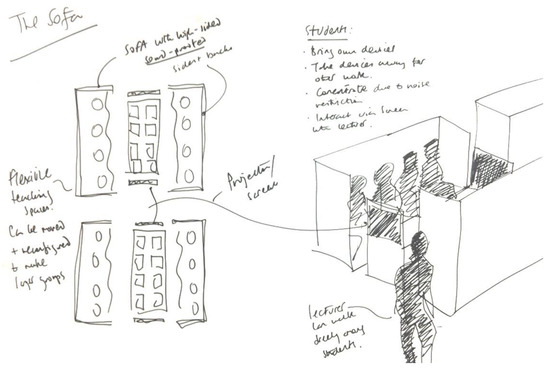 The Sofa
SOFA with high-sided
sound-proofed
sides + backs
Students:
· Bring own devices
· Take devices away for
other work.
· Concentrate due to noise
restriction
· Interact via screen
with lecturer.
Flexible
teaching
spaces.
Can be moved
+ reconfigured
to make
larger groups
Projection/
screen
lecturer
can walk
freely among
students.